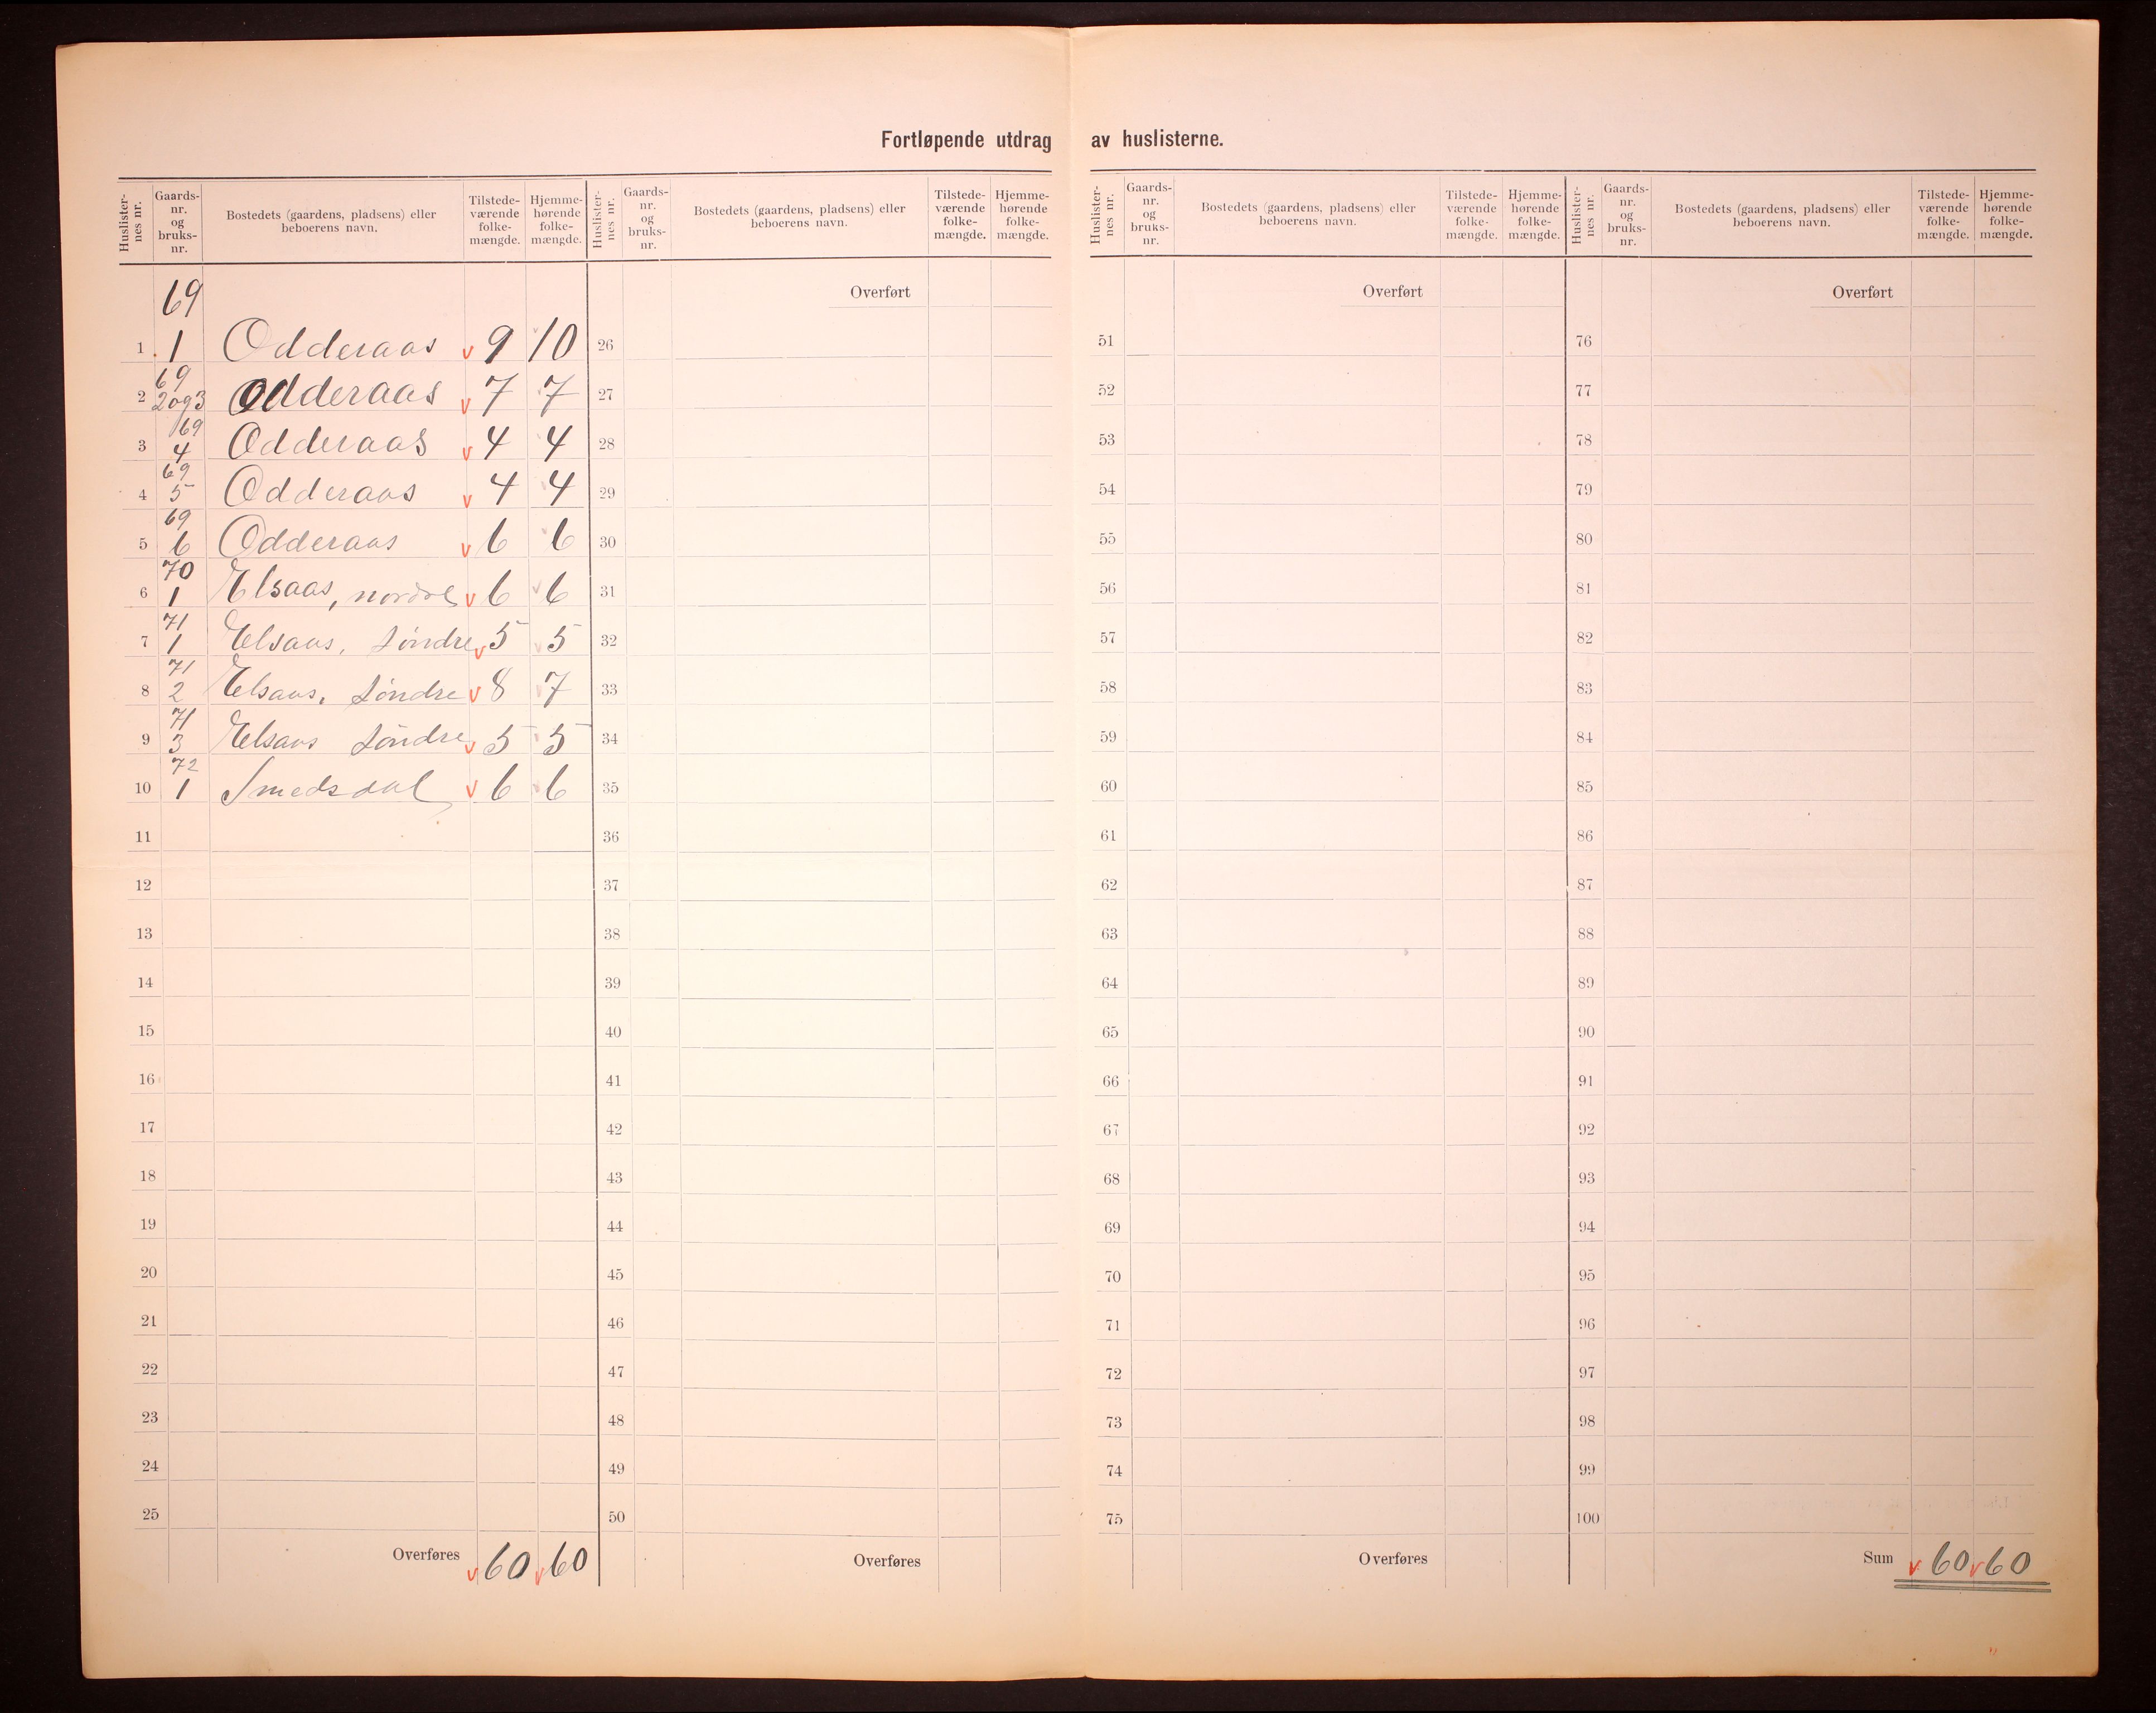 Fortløpende utdrag av huslisterne.
Huslister-nes nr. Gaards-nr. og bruks-nr. Bostedets (gaardens, pladsens) eller beboerens navn. Tilstede-værende folke-mængde. Hjemme-hørende folke-mængde.
Huslister-nes nr. Gaards-nr. og bruks-nr. Bostedets (gaardens, pladsens) eller beboerens navn. Tilstede-værende folke-mængde. Hjemme-hørende folke-mængde.
Huslister-nes nr. Gaards-nr. og bruks-nr. Bostedets (gaardens, pladsens) eller beboerens navn. Tilstede-værende folke-mængde. Hjemme-hørende folke-mængde.
Huslister-nes nr. Gaards-nr. og bruks-nr. Bostedets (gaardens, pladsens) eller beboerens navn. Tilstede-værende folke-mængde. Hjemme-hørende folke-mængde.
69
1 1 Odderaas v 9 v 10
69
2 2og3 Odderaas v 7 7
69
3 4 Odderaas v 4 4
69
4 5 Odderaas v 4 4
69
5 6 Odderaas v 6 v 6
70
6 1 Elsaas, nordre v 6 v 6
71
7 1 Elsaas, Søndre v 5 v 5
71
8 2 Elsaas, Søndre v 8 v 7
71
9 3 Elsaas Søndre v 5 v 5
72
10 1 Smedsdal v 6 v 6
11
12
13
14
15
16
17
18
19
20
21
22
23
24
25
Overføres v 60 v 60
Overført
26
27
28
29
30
31
32
33
34
35
36
37
38
39
40
41
42
43
44
45
46
47
48
49
50
Overføres
Overført
51
52
53
54
55
56
57
58
59
60
61
62
63
64
65
66
67
68
69
70
71
72
73
74
75
Overføres
Overført
76
77
78
79
80
81
82
83
84
85
86
87
88
89
90
91
92
93
94
95
96
97
98
99
100
Sum v 60 v 60